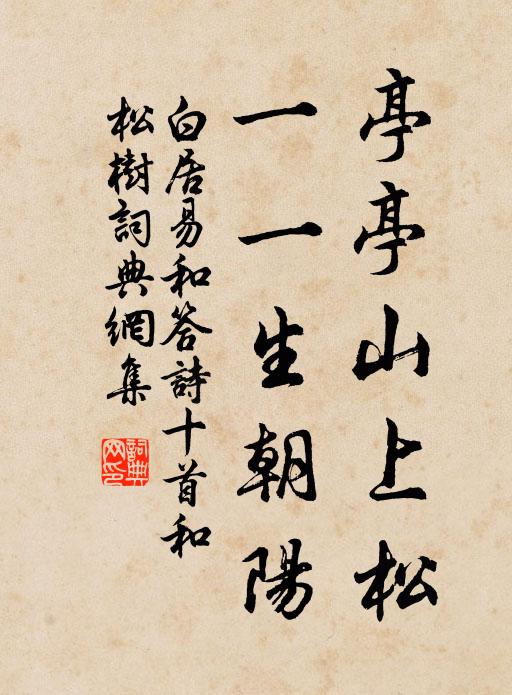 亭亭山上松
一一生朝陽
白居易和答詩十首和
松樹詞典網集
詞典
网印